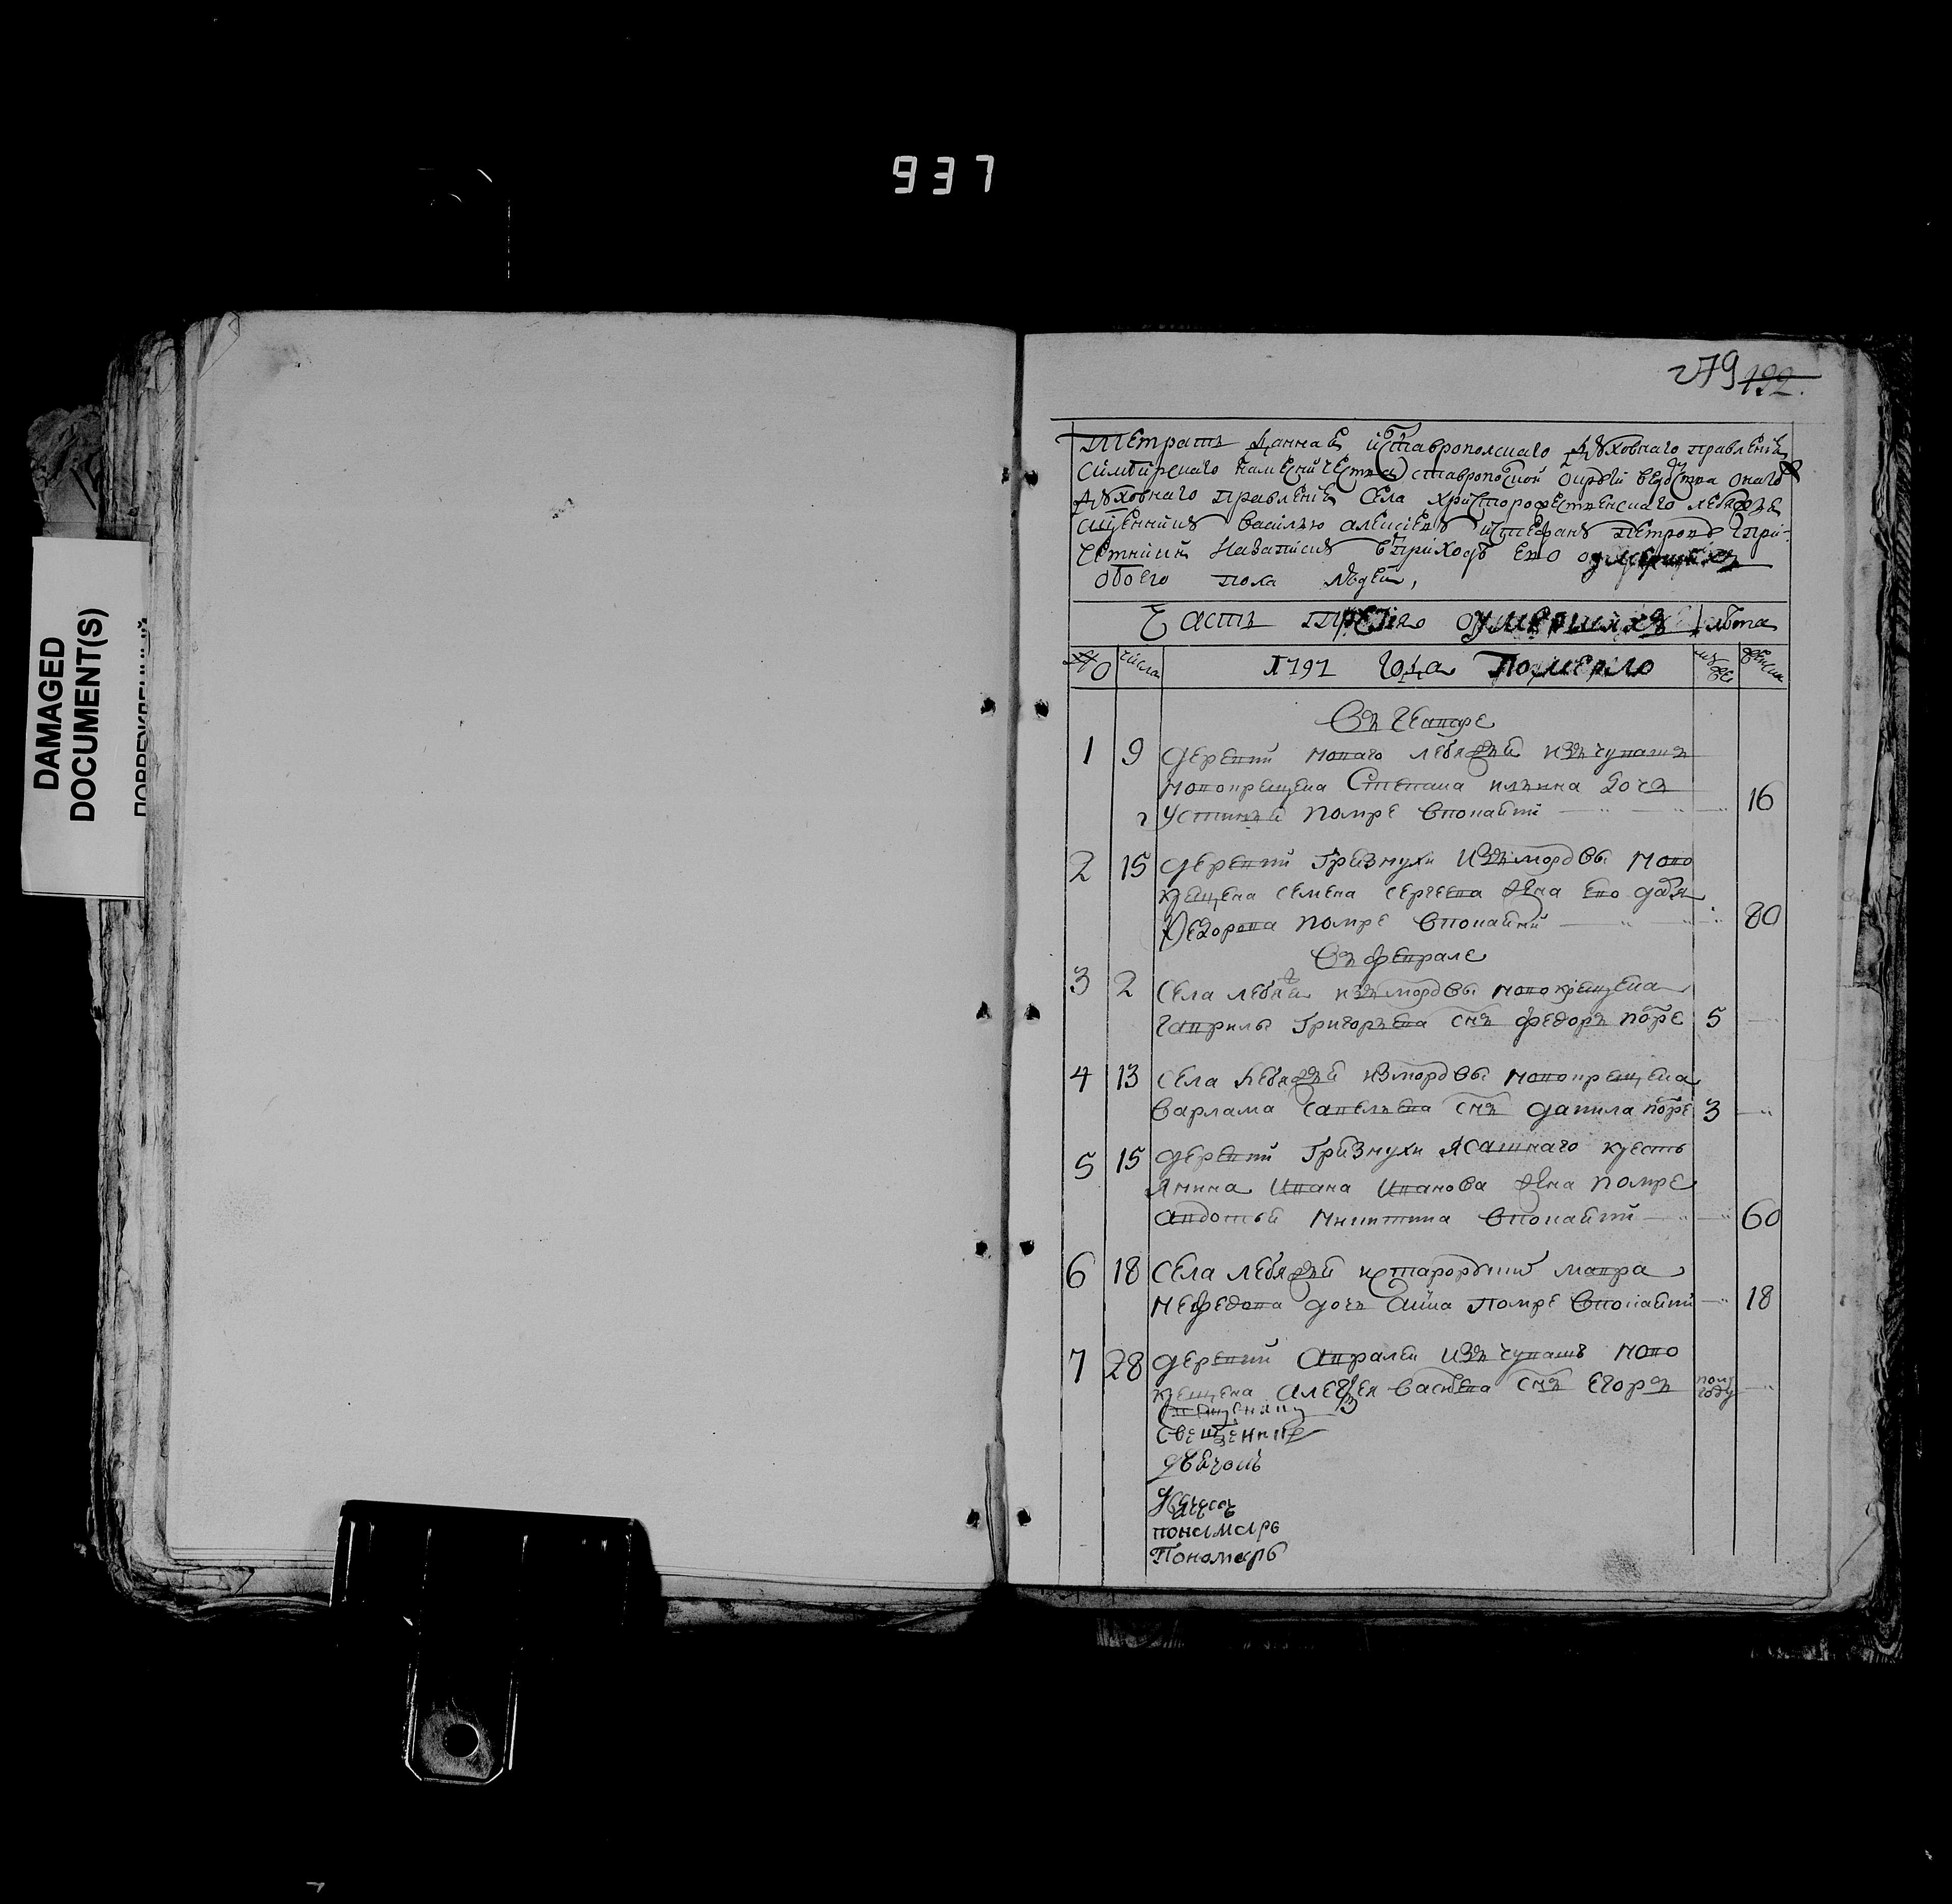 937
279 192.
DAMAGED
DOCUMENT(S)
ПОВРЕЖДЕННЫЙ
Тетрать даннаѣ иставропольскаго духовнаго правлениѣ
Симбирскаго намесничества ставропольской округи ведомства онаго
духовнаго правлениѣ села христорождественскаго лебяжье
священнику василью алексѣеву истефану петрову спри-
четники назаписку вприходѣ ево оумершихъ
обоего пола людей,
Часть третія оумершихъ лѣта
№ числа 1791 года померло муже женска
Въ генваре
1 9 деревни новаго лебяжья изъ чувашъ
новокрещена Степана ильина дочь
устинья помре впокаянии 16
2 15 деревни Грязнухи изъ мордвы ново
крещена семена сергеева жена ево дарья
Федорова помре впокаянии 80
Въ феврале
3 2 села лебяжья изъ мордвы новокрещена
гаврилы Григорьева снъ федоръ помре 5
4 13 села лебяжья измордвы новокрещена
варлама савельева снъ данила помре 3
5 15 деревни Грязнухи ясашнаго кресть
янина ивана иванова жена помре
авдотья никитина впокаянии 60
6 18 села лебяжья мавра
нефедова дочь анна помре впокаянии 18
7 28 деревни авралей изъ чувашъ ново
крещена алексея васильева снъ егоръ полу году
священникъ
дьячокъ
пономарь
Пономарь